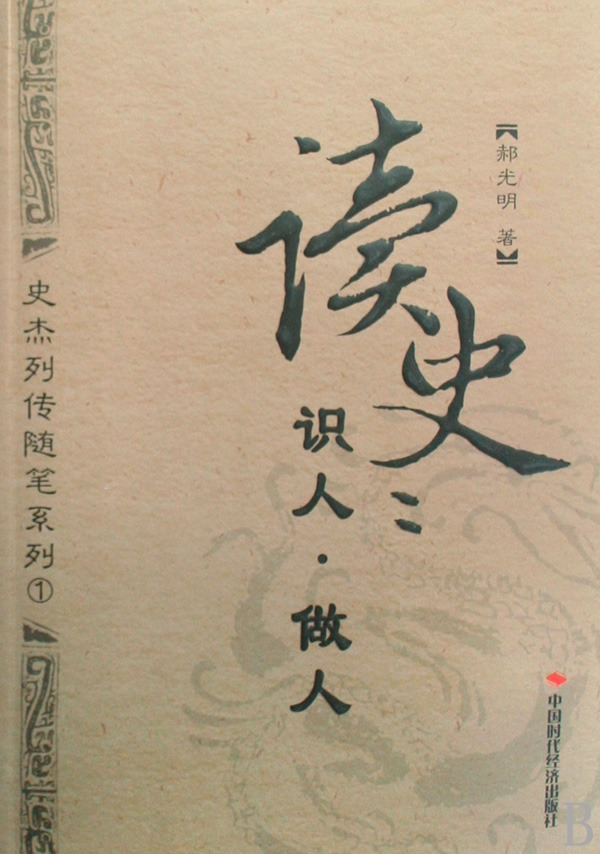 【郝光明 著】
读史：
识人·做人
史杰列传随笔系列①
中国时代经济出版社
B